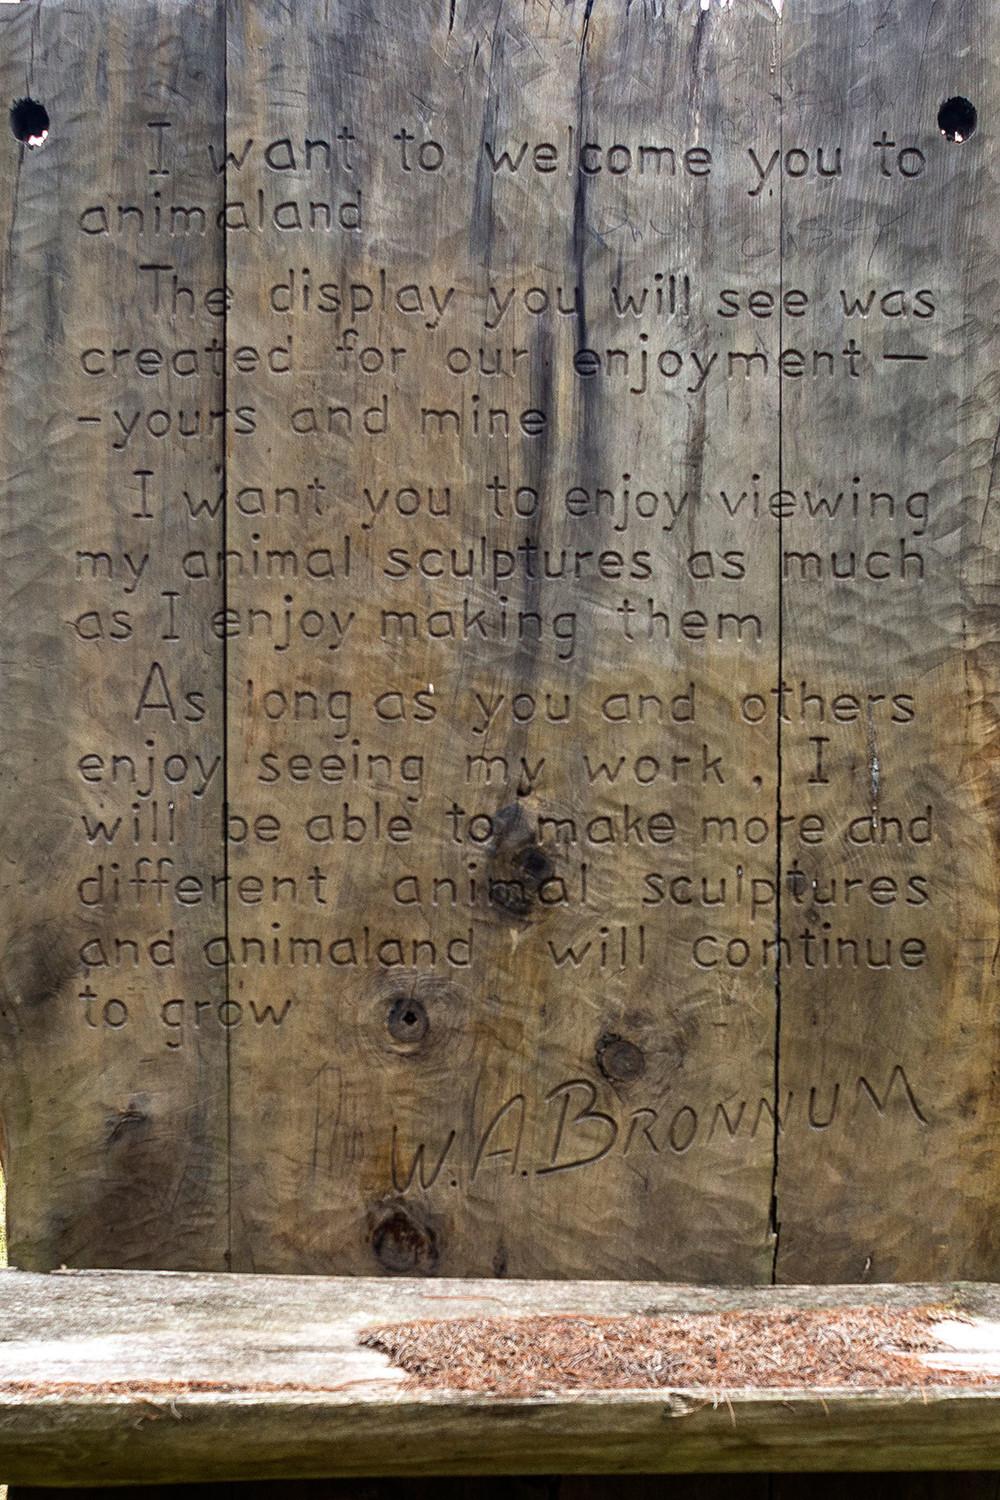 I want to welcome you to
animaland
The display you will see was
created for our enjoyment —
-yours and mine
I want you to enjoy viewing
my animal sculptures as much
as I enjoy making them
As long as you and others
enjoy seeing my work, I
will be able to make more and
different animal sculptures
and animaland will continue
to grow
W.A.BRONNUM